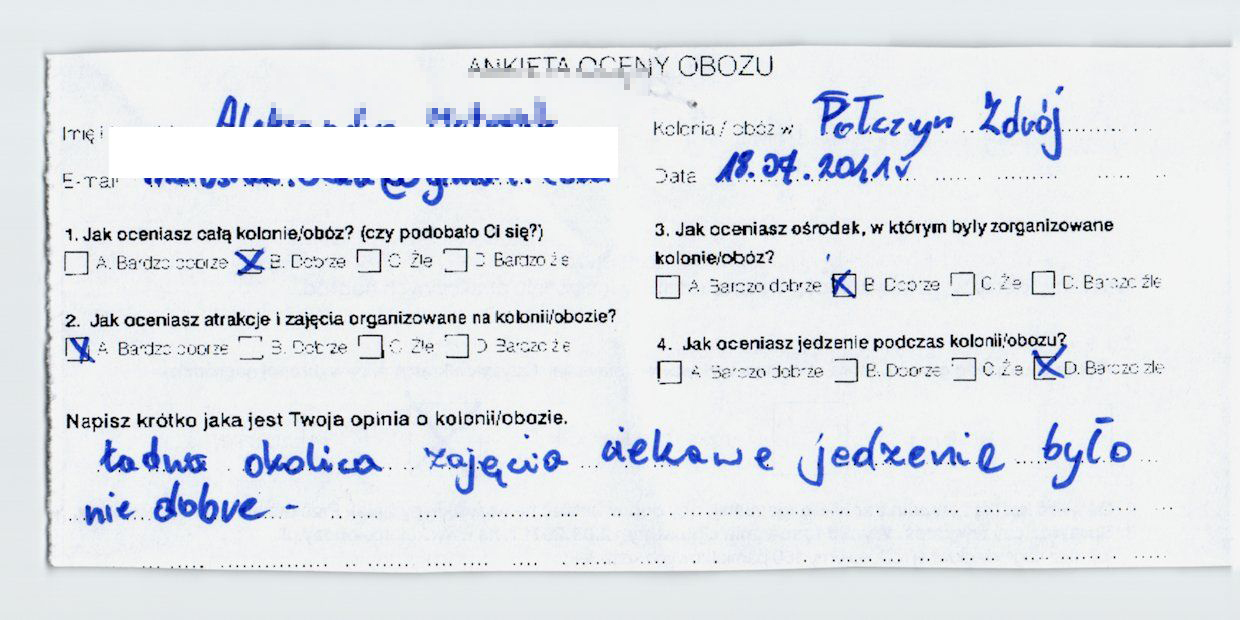 ANKIETA OCENY OBOZU
Imię i
Kolonia / obóz w Połczyn Zdrój
E-mail
Data 18.07.2011r
1. Jak oceniasz całą kolonie/obóz? (czy podobało Ci się?)
A. Bardzo dobrze B. Dobrze C. Źle D. Bardzo źle
2. Jak oceniasz atrakcje i zajęcia organizowane na kolonii/obozie?
A. Bardzo dobrze B. Dobrze C. Źle D. Bardzo źle
3. Jak oceniasz ośrodek, w którym były zorganizowane
kolonie/obóz?
A. Bardzo dobrze B. Dobrze C. Źle D. Bardzo źle
4. Jak oceniasz jedzenie podczas kolonii/obozu?
A. Bardzo dobrze B. Dobrze C. Źle D. Bardzo źle
Napisz krótko jaka jest Twoja opinia o kolonii/obozie.
ładna okolica zajęcia ciekawe jedzenie było
nie dobre -